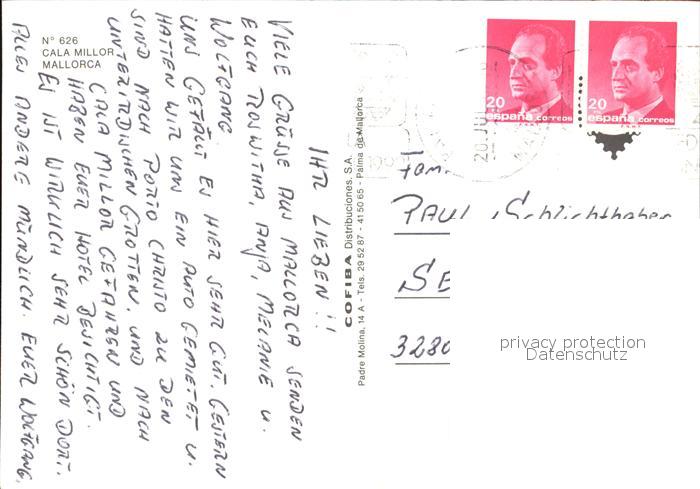 N° 626
CALA MILLOR
MALLORCA
IHR LIEBEN!!
VIELE GRÜSSE AUS MALLORCA SENDEN
EUCH ROSWITHA, ANJA, MELANIE U.
WOLFGANG.
UNS GEFÄLLT ES HIER SEHR GUT. GESTERN
HATTEN WIR UNS EIN AUTO GEMIETET U.
SIND NACH PORTO CHRISTO ZU DEN
UNTERIRDISCHEN GROTTEN, UND NACH
CALA MILLOR GEFAHREN UND
HABEN EUER HOTEL BESICHTIGT.
ES IST WIRKLICH SEHR SCHÖN DORT.
ALLES ANDERE MÜNDLICH. EUER WOLFGANG.
COFIBA Distribuciones, S.A.
Padre Molina, 14 A - Tels. 29 52 87 - 41 50 65 - Palma de Mallorca
20
españa correos
20
españa correos
20 JUL
Fam.
PAUL Schlichthaber
SE
3280
privacy protection
Datenschutz